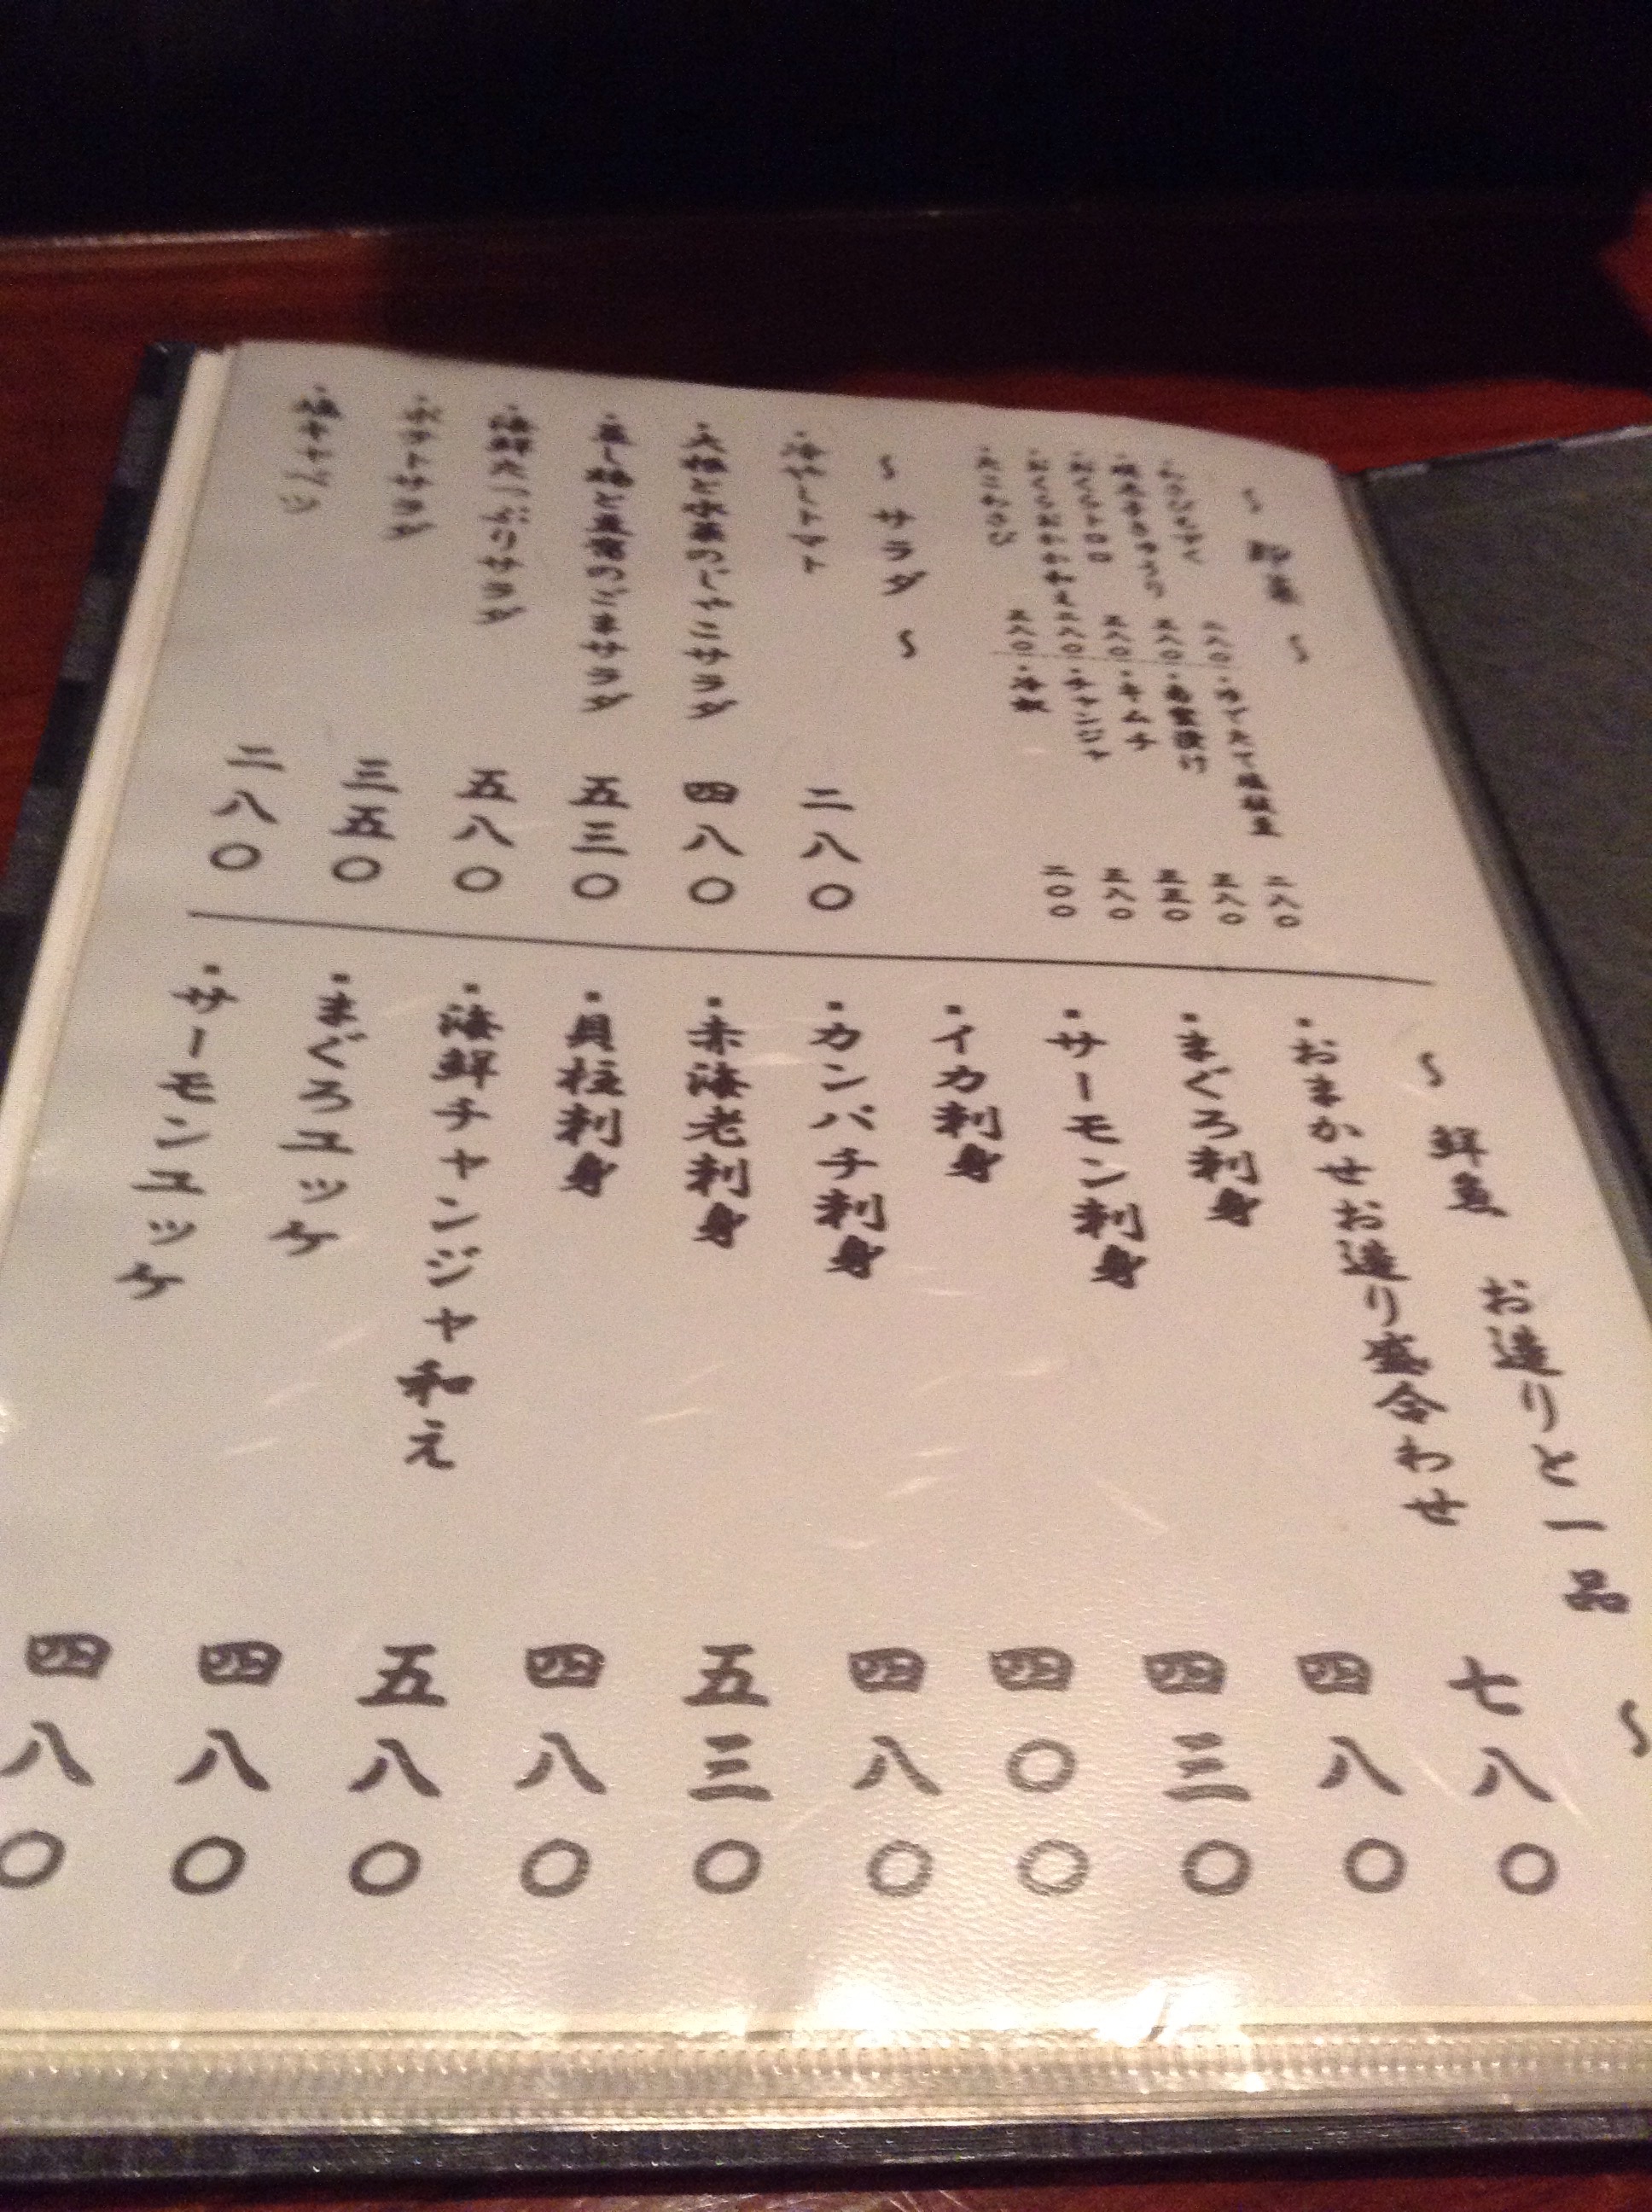 ～ 即菜 ～
・わさびもずく 二八〇
・おくらトロロ 三八〇
・おくらおかか和え 二八〇
・たこわさび 三八〇
・ゆでたて塩枝豆 二八〇
・キムチ 三五〇
・チャンジャ 三八〇
・冷奴 二〇〇
～ サラダ ～
・冷やしトマト 二八〇
・大根と水菜のじゃこサラダ 四八〇
・蒸し鶏と豆腐のごまサラダ 五三〇
・海鮮たっぷりサラダ 五八〇
・ポテトサラダ 三五〇
・塩キャベツ 二八〇
～ 鮮魚 お造りと一品 ～
・おまかせお造り盛合わせ 七八〇
・まぐろ刺身 四八〇
・サーモン刺身 四三〇
・イカ刺身 四〇〇
・カンパチ刺身 四八〇
・赤海老刺身 五三〇
・貝柱刺身 四八〇
・海鮮チャンジャ和え 五八〇
・まぐろユッケ 四八〇
・サーモンユッケ 四八〇